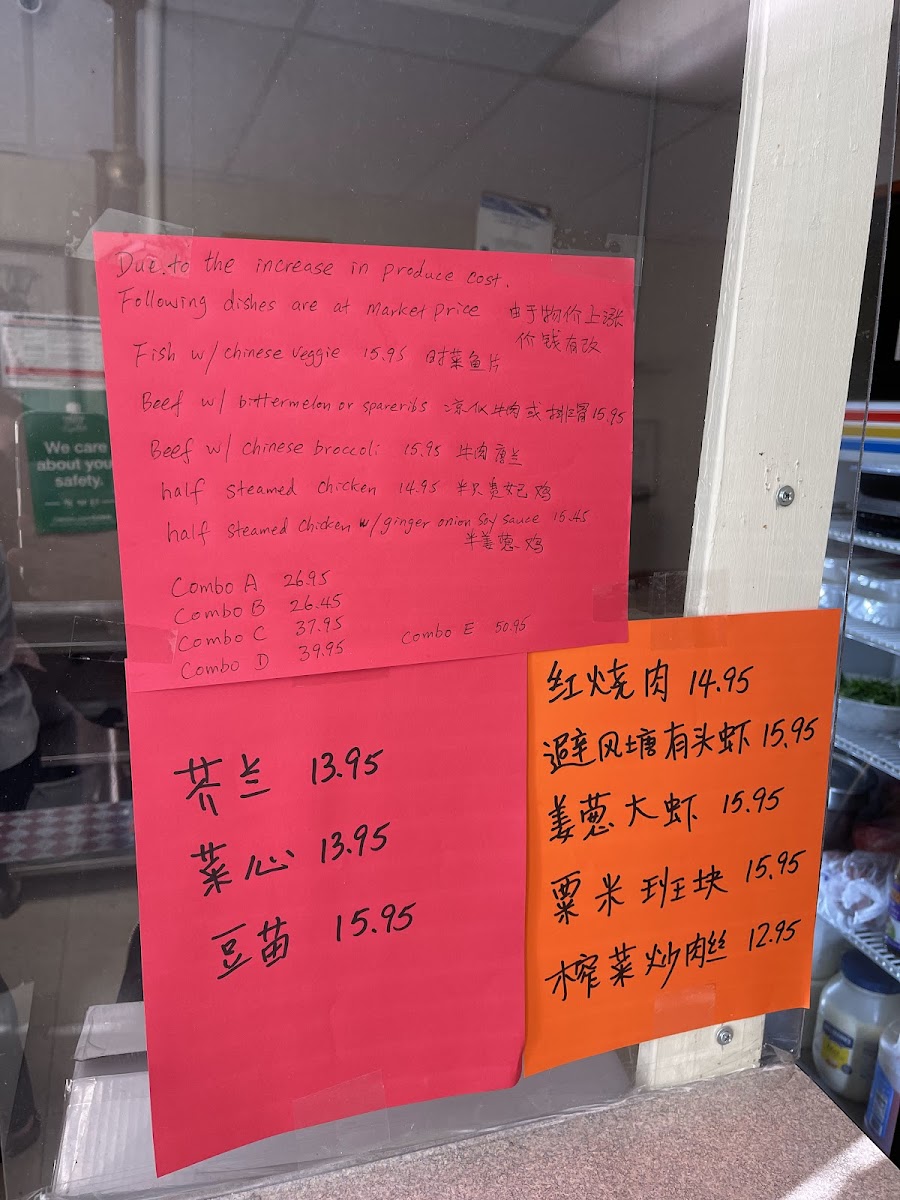 Due to the increase in produce cost.
Following dishes are at market price 由于物价上涨
价钱有改
Fish w/ chinese veggie 15.95 时菜鱼片
Beef w/ bittermelon or spareribs 凉瓜牛肉或排骨 15.95
Beef w/ chinese broccoli 15.95 牛肉唐兰
half steamed chicken 14.95 半只贵妃鸡
half steamed chicken w/ ginger onion soy sauce 15.45
半姜葱鸡
Combo A 26.95
Combo B 26.45
Combo C 37.95
Combo D 39.95 Combo E 50.95
芥兰 13.95
菜心 13.95
豆苗 15.95
红烧肉 14.95
避风塘有头虾 15.95
姜葱大虾 15.95
粟米班块 15.95
榨菜炒肉丝 12.95
We care
about your
safety.